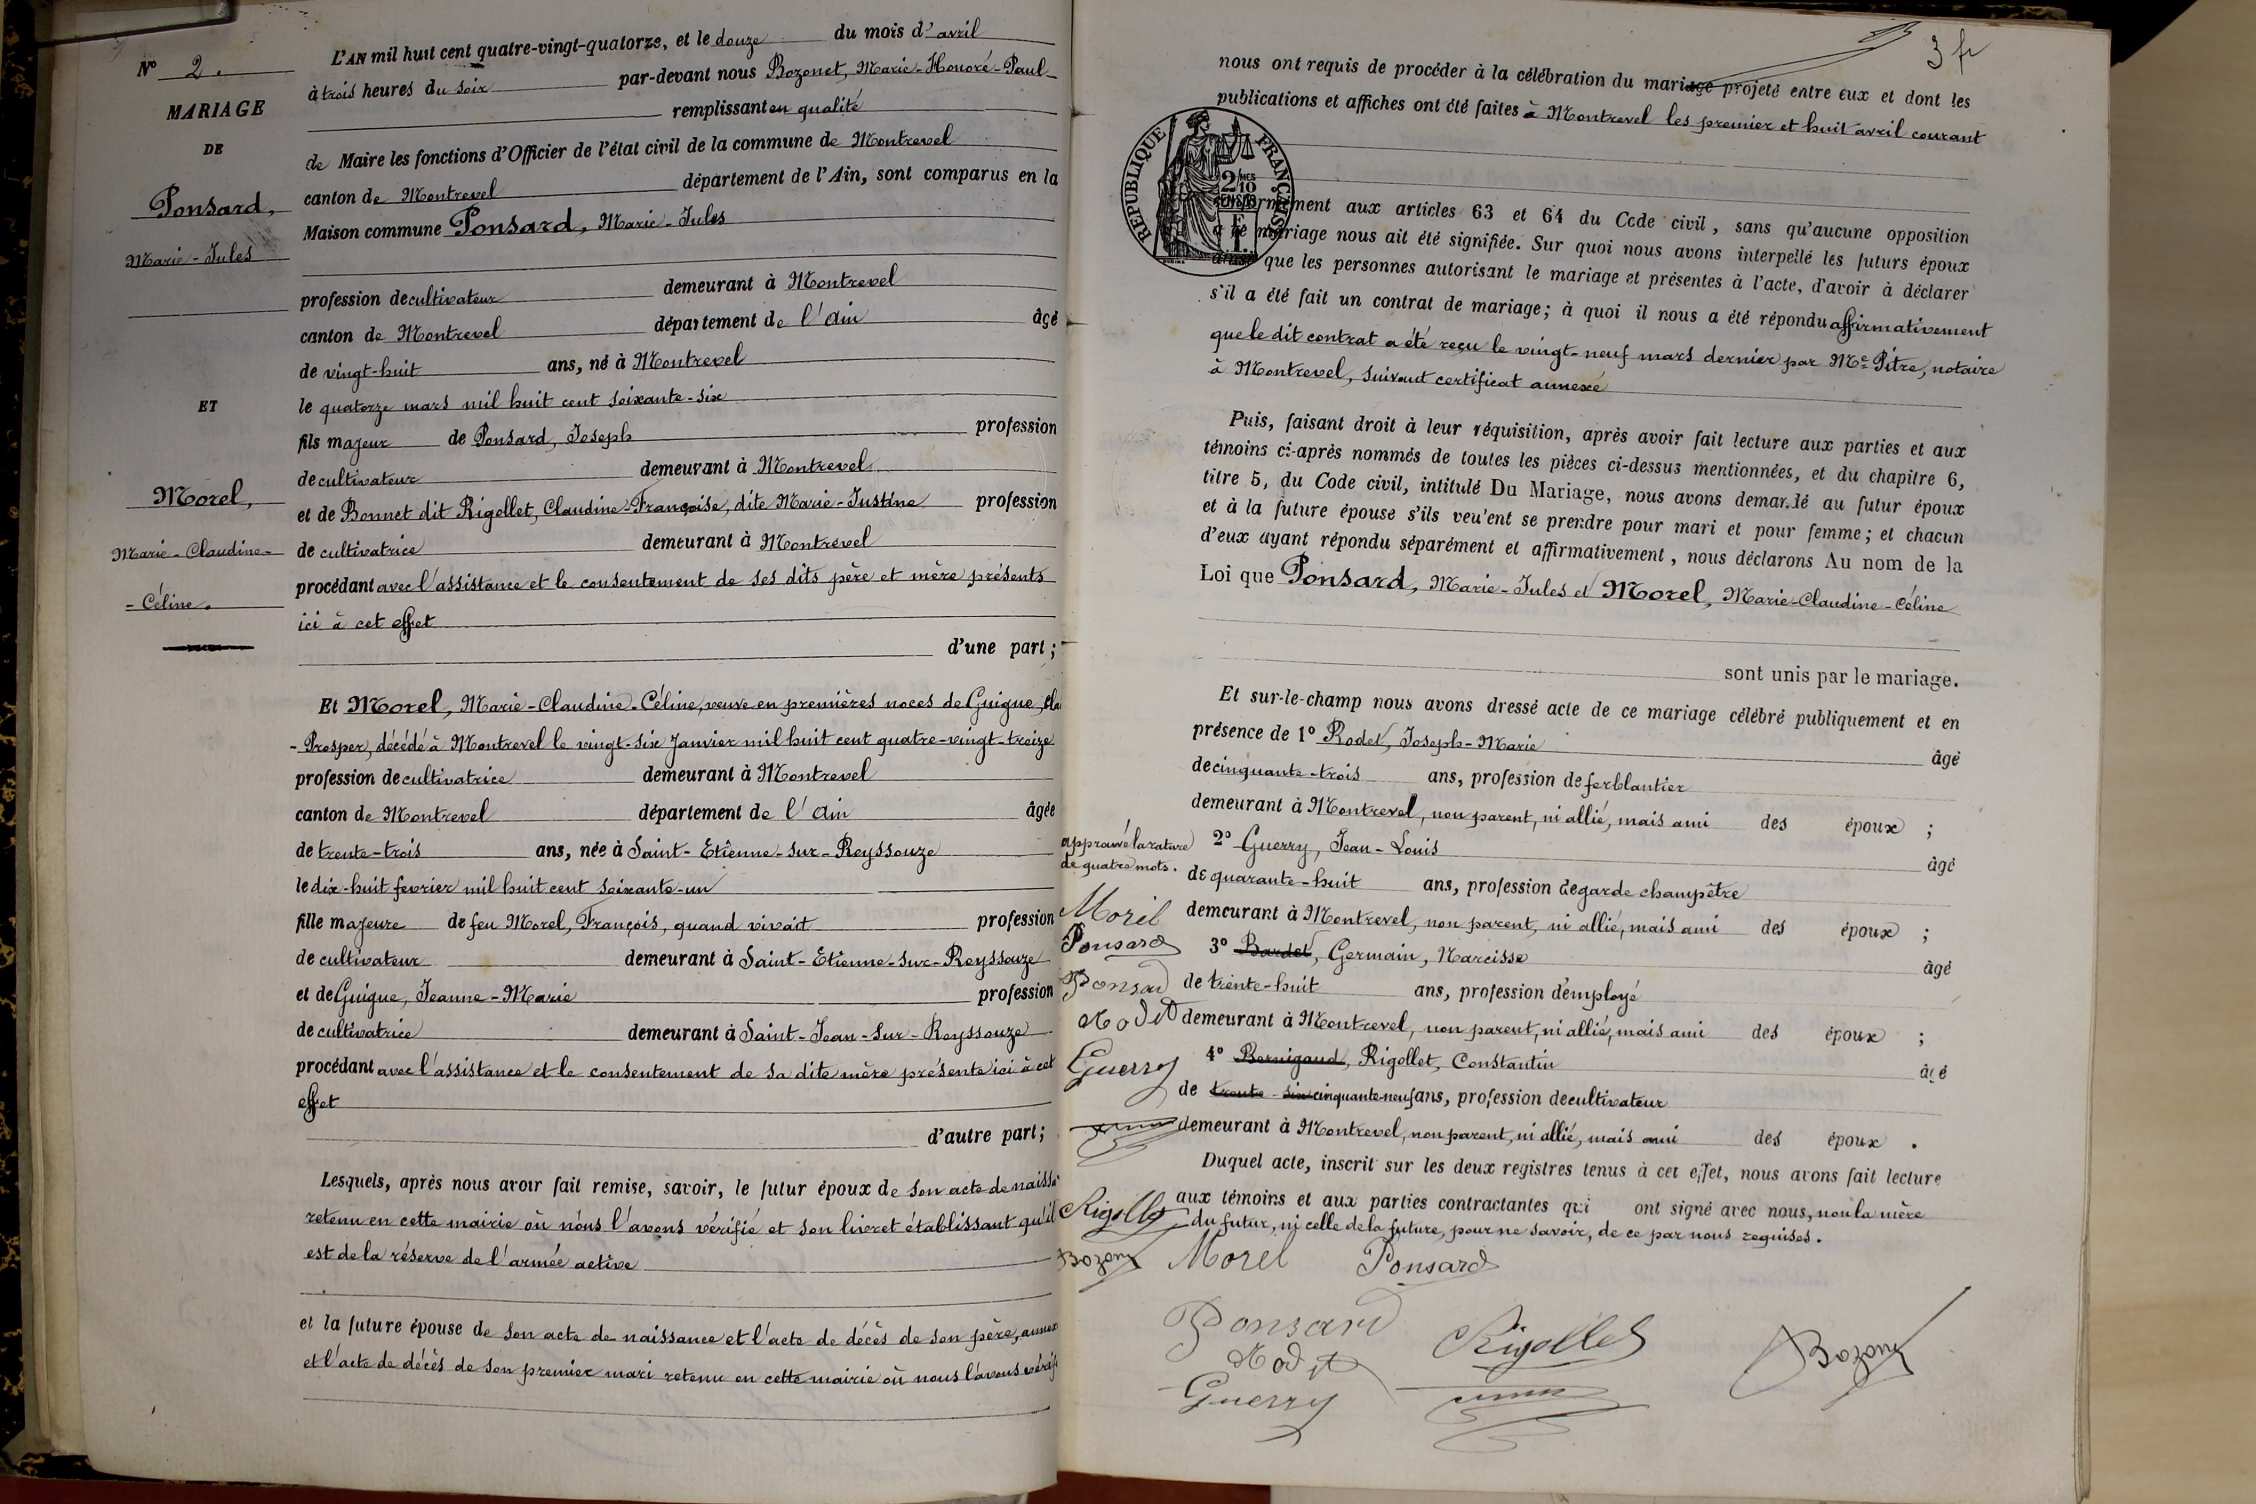 N° 2.
MARIAGE
DE
Ponsard,
Marie-Jules
ET
Morel,
Marie-Claudine-
-Céline.
L'AN mil huit cent quatre-vingt-quatorze, et le douze du mois d'avril
à trois heures du soir par-devant nous Bozonet, Marie-Honoré-Paul
remplissant en qualité
de Maire les fonctions d'Officier de l'état civil de la commune de Montrevel
canton de Montrevel département de l'Ain, sont comparus en la
Maison commune Ponsard, Marie-Jules
profession de cultivateur demeurant à Montrevel
canton de Montrevel département de l'Ain âgé
de vingt-huit ans, né à Montrevel
le quatorze mars mil huit cent soixante-six
fils majeur de Ponsard, Joseph profession
de cultivateur demeurant à Montrevel
et de Bonnet dit Rigollet, Claudine-Françoise, dite Marie-Justine profession
de cultivatrice demeurant à Montrevel
procédant avec l'assistance et le consentement de ses dits père et mère présents
ici à cet effet
d'une part;
Et Morel, Marie-Claudine-Céline, veuve en premières noces de Guigue, Cla
-Prosper, décédé à Montrevel le vingt-six Janvier mil huit cent quatre-vingt-treize
profession de cultivatrice demeurant à Montrevel
canton de Montrevel département de l'Ain âgée
de trente-trois ans, née à Saint-Etienne-sur-Reyssouze
le dix-huit fevrier mil huit cent soixante-un
fille majeure de feu Morel, François, quand vivait profession
de cultivateur demeurant à Saint-Etienne-sur-Reyssouze
et de Guigue, Jeanne-Marie profession
de cultivatrice demeurant à Saint-Jean-sur-Reyssouze
procédant avec l'assistance et le consentement de sa dite mère présente ici à cet
effet
d'autre part;
Lesquels, après nous avoir fait remise, savoir, le futur époux de son acte de naissa
retenu en cette mairie où nous l'avons vérifié et son livret établissant qu'il
est de la réserve de l'armée active
et la future épouse de son acte de naissance et l'acte de décès de son père, annex
et l'acte de décès de son premier mari retenu en cette mairie où nous l'avons vérifi
3 fr
nous ont requis de procéder à la célébration du mariage projeté entre eux et dont les
publications et affiches ont été faites à Montrevel les premier et huit avril courant
REPUBLIQUE FRANÇAISE
2/10
EN SUS
conformément aux articles 63 et 64 du Code civil, sans qu'aucune opposition
à ce mariage nous ait été signifiée. Sur quoi nous avons interpellé les futurs époux
ainsi que les personnes autorisant le mariage et présentes à l'acte, d'avoir à déclarer
s'il a été fait un contrat de mariage; à quoi il nous a été répondu affirmativement
que le dit contrat a été reçu le vingt-neuf mars dernier par Me Pitre, notaire
à Montrevel, suivant certificat annexé
Puis, faisant droit à leur réquisition, après avoir fait lecture aux parties et aux
témoins ci-après nommés de toutes les pièces ci-dessus mentionnées, et du chapitre 6,
titre 5, du Code civil, intitulé Du Mariage, nous avons demandé au futur époux
et à la future épouse s'ils veulent se prendre pour mari et pour femme; et chacun
d'eux ayant répondu séparément et affirmativement, nous déclarons Au nom de la
Loi que Ponsard, Marie-Jules et Morel, Marie-Claudine-Céline
sont unis par le mariage.
Et sur-le-champ nous avons dressé acte de ce mariage célébré publiquement et en
présence de 1° Rodet, Joseph-Marie âgé
de cinquante-trois ans, profession de ferblantier
demeurant à Montrevel, non parent, ni allié, mais ami des époux;
2° Guerry, Jean-Louis âgé
de quarante-huit ans, profession de garde champêtre
demeurant à Montrevel, non parent, ni allié, mais ami des époux;
3° Bardet, Germain, Narcisse âgé
de trente-huit ans, profession d'employé
demeurant à Montrevel, non parent, ni allié, mais ami des époux;
4° Bernigaud, Rigollet, Constantin âgé
de trente-six cinquante-neuf ans, profession de cultivateur
demeurant à Montrevel, non parent, ni allié, mais ami des époux.
Duquel acte, inscrit sur les deux registres tenus à cet effet, nous avons fait lecture
aux témoins et aux parties contractantes qui ont signé avec nous, non la mère
du futur, ni celle de la future, pour ne savoir, de ce par nous requises.
approuvé la rature
de quatre mots.
Morel
Ponsard
Ponsard
Rodet
Guerry
Rigollet
Bozonet
Morel Ponsard
Ponsard Rigollet Bozonet
Rodet
Guerry